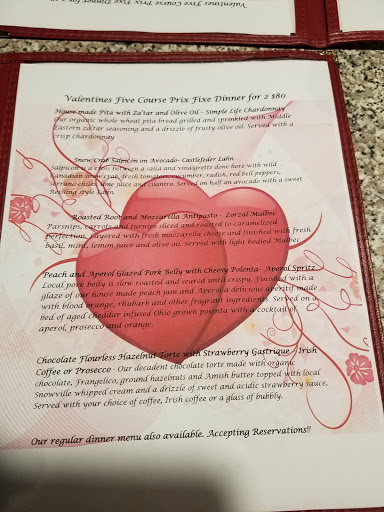 Valentines Five Course Prix Fixe Dinner for 2 $80
House made Pita with Za'tar and Olive Oil - Simple Life Chardonnay
Our organic whole wheat pita bread grilled and sprinkled with Middle
Eastern za'tar seasoning and a drizzle of fruity olive oil. Served with a
crisp chardonnay
Snow Crab Salpicon on Avocado- Castlefeder Lahn
Salpicon is a cross between a salsa and vinaigrette done here with wild
Canadian snow crab, fresh tomato, cucumber, radish, red bell peppers,
serrano chiles, lime juice and cilantro. Served on half an avocado with a sweet
Reisling style Lahn.
Roasted Root and Mozzarella Antipasto - Zorzal Malbec
Parsnips, carrots and turnips sliced and roasted to caramelized
perfection. Layered with fresh mozzarella cheese and finished with fresh
basil, mint, lemon juice and olive oil. Served with light bodied Malbec
Peach and Aperol Glazed Pork Belly with Cheesy Polenta - Aperol Spritz
Local pork belly is slow roasted and seared until crispy. Finished with a
glaze of our house made peach jam and Aperol a delicious aperitif made
with blood orange, rhubarb and other fragrant ingredients. Served on a
bed of aged cheddar infused Ohio grown polenta with a cocktail of
aperol, prosecco and orange.
Chocolate Flourless Hazelnut Torte with Strawberry Gastrique - Irish
Coffee or Prosecco - Our decadent chocolate torte made with organic
chocolate, Frangelico, ground hazelnuts and Amish butter topped with local
Snowville whipped cream and a drizzle of sweet and acidic strawberry sauce,
Served with your choice of coffee, Irish coffee or a glass of bubbly.
Our regular dinner menu also available. Accepting Reservations!!